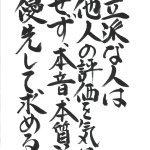 立派な人は
他人の評価を気に
せず、本音、本質を
優先して求める